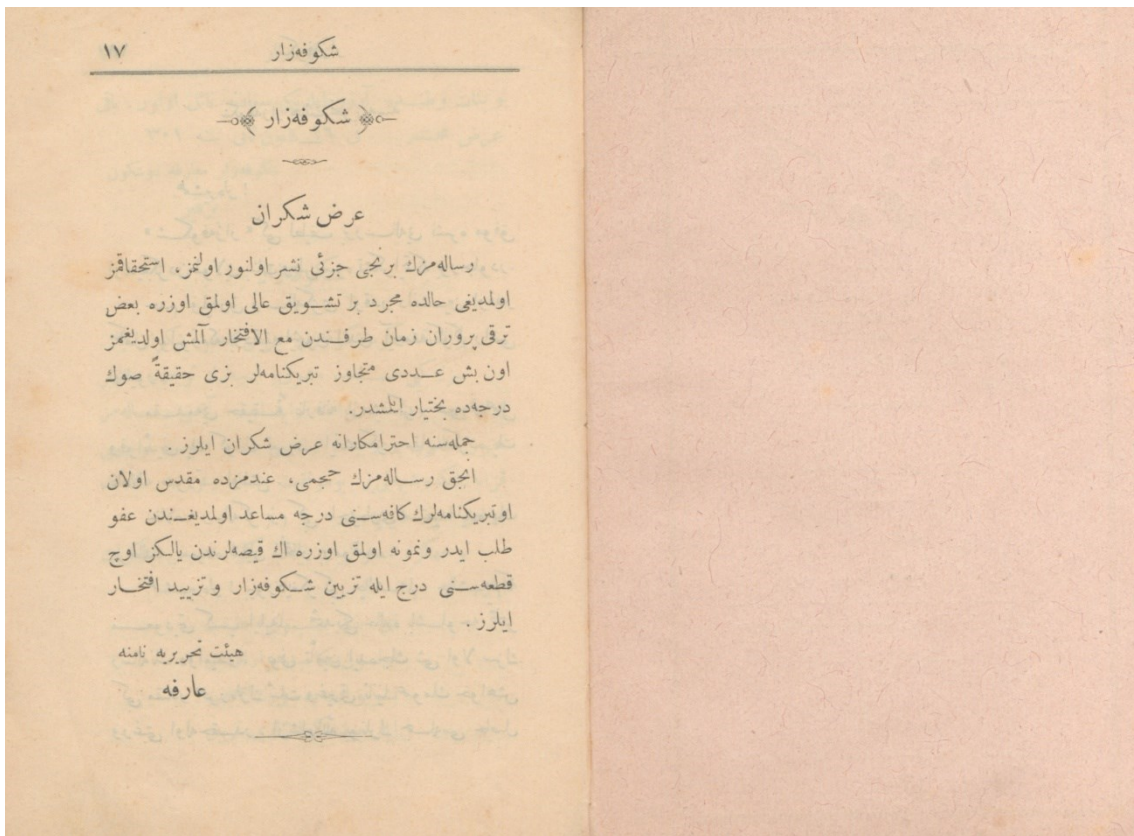 شكوفه‌زار ١٧
شكوفه‌زار
عرض شكران
رساله‌مزك برنجى جزئى نشر اولنور اولنمز، استحقاقمز
اولمديغى حالده مجرد بر تشويق عالى اولمق اوزره بعض
ترقى پروران زمان طرفندن مع الافتخار آلمش اولديغمز
اون بش عددى متجاوز تبريكنامه‌لر بزى حقيقةً صوك
درجه‌ده بختيار ايتمشدر.
جمله‌سنه احترامكارانه عرض شكران ايلرز.
انجق رساله‌مزك حجمى، عندمزده مقدس اولان
او تبريكنامه‌لرك كافه‌سنى درجه مساعد اولمديغندن عفو
طلب ايدر ونمونه اولمق اوزره اك قيصه‌لرندن يالكز اوچ
قطعه‌سنى درج ايله تزيين شكوفه‌زار و تزييد افتخار
ايلرز.
هيئت تحريريه نامنه
عارفه